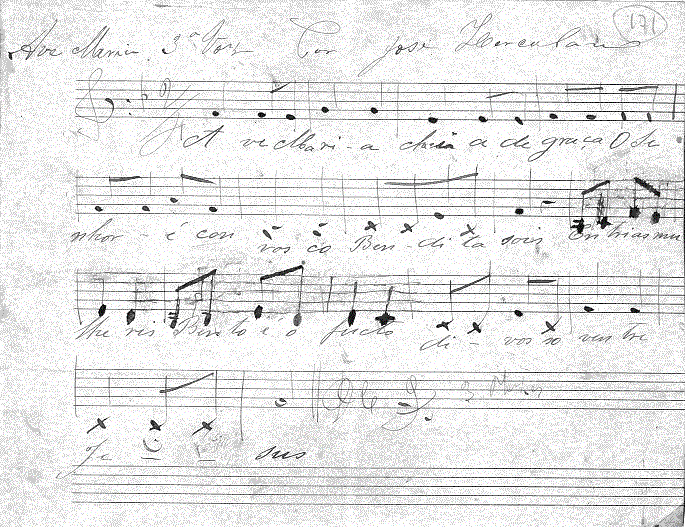 171
Ave Maria 3ª Voz Por José Herculano
A ve Mari - a cheia a de graça O Se
nhor - é con vos co Ben - di ta sois En trias mu
lhe res Bento é o fructo di - vos so ven tre
Je sus